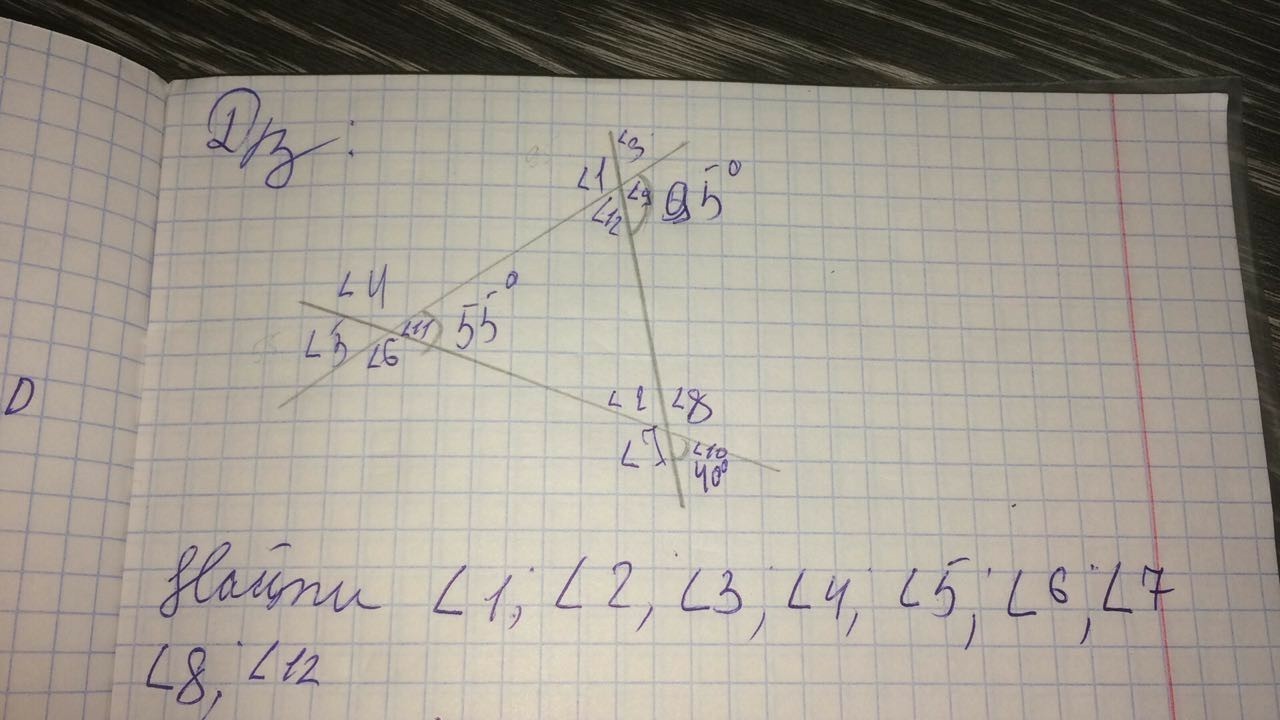 Дз:
∠3
∠1
∠9 95°
∠12
∠4
∠11 55°
∠5
∠6
∠2 ∠8
∠7
∠10
40°
D
Найти ∠1; ∠2, ∠3, ∠4, ∠5, ∠6, ∠7
∠8; ∠12